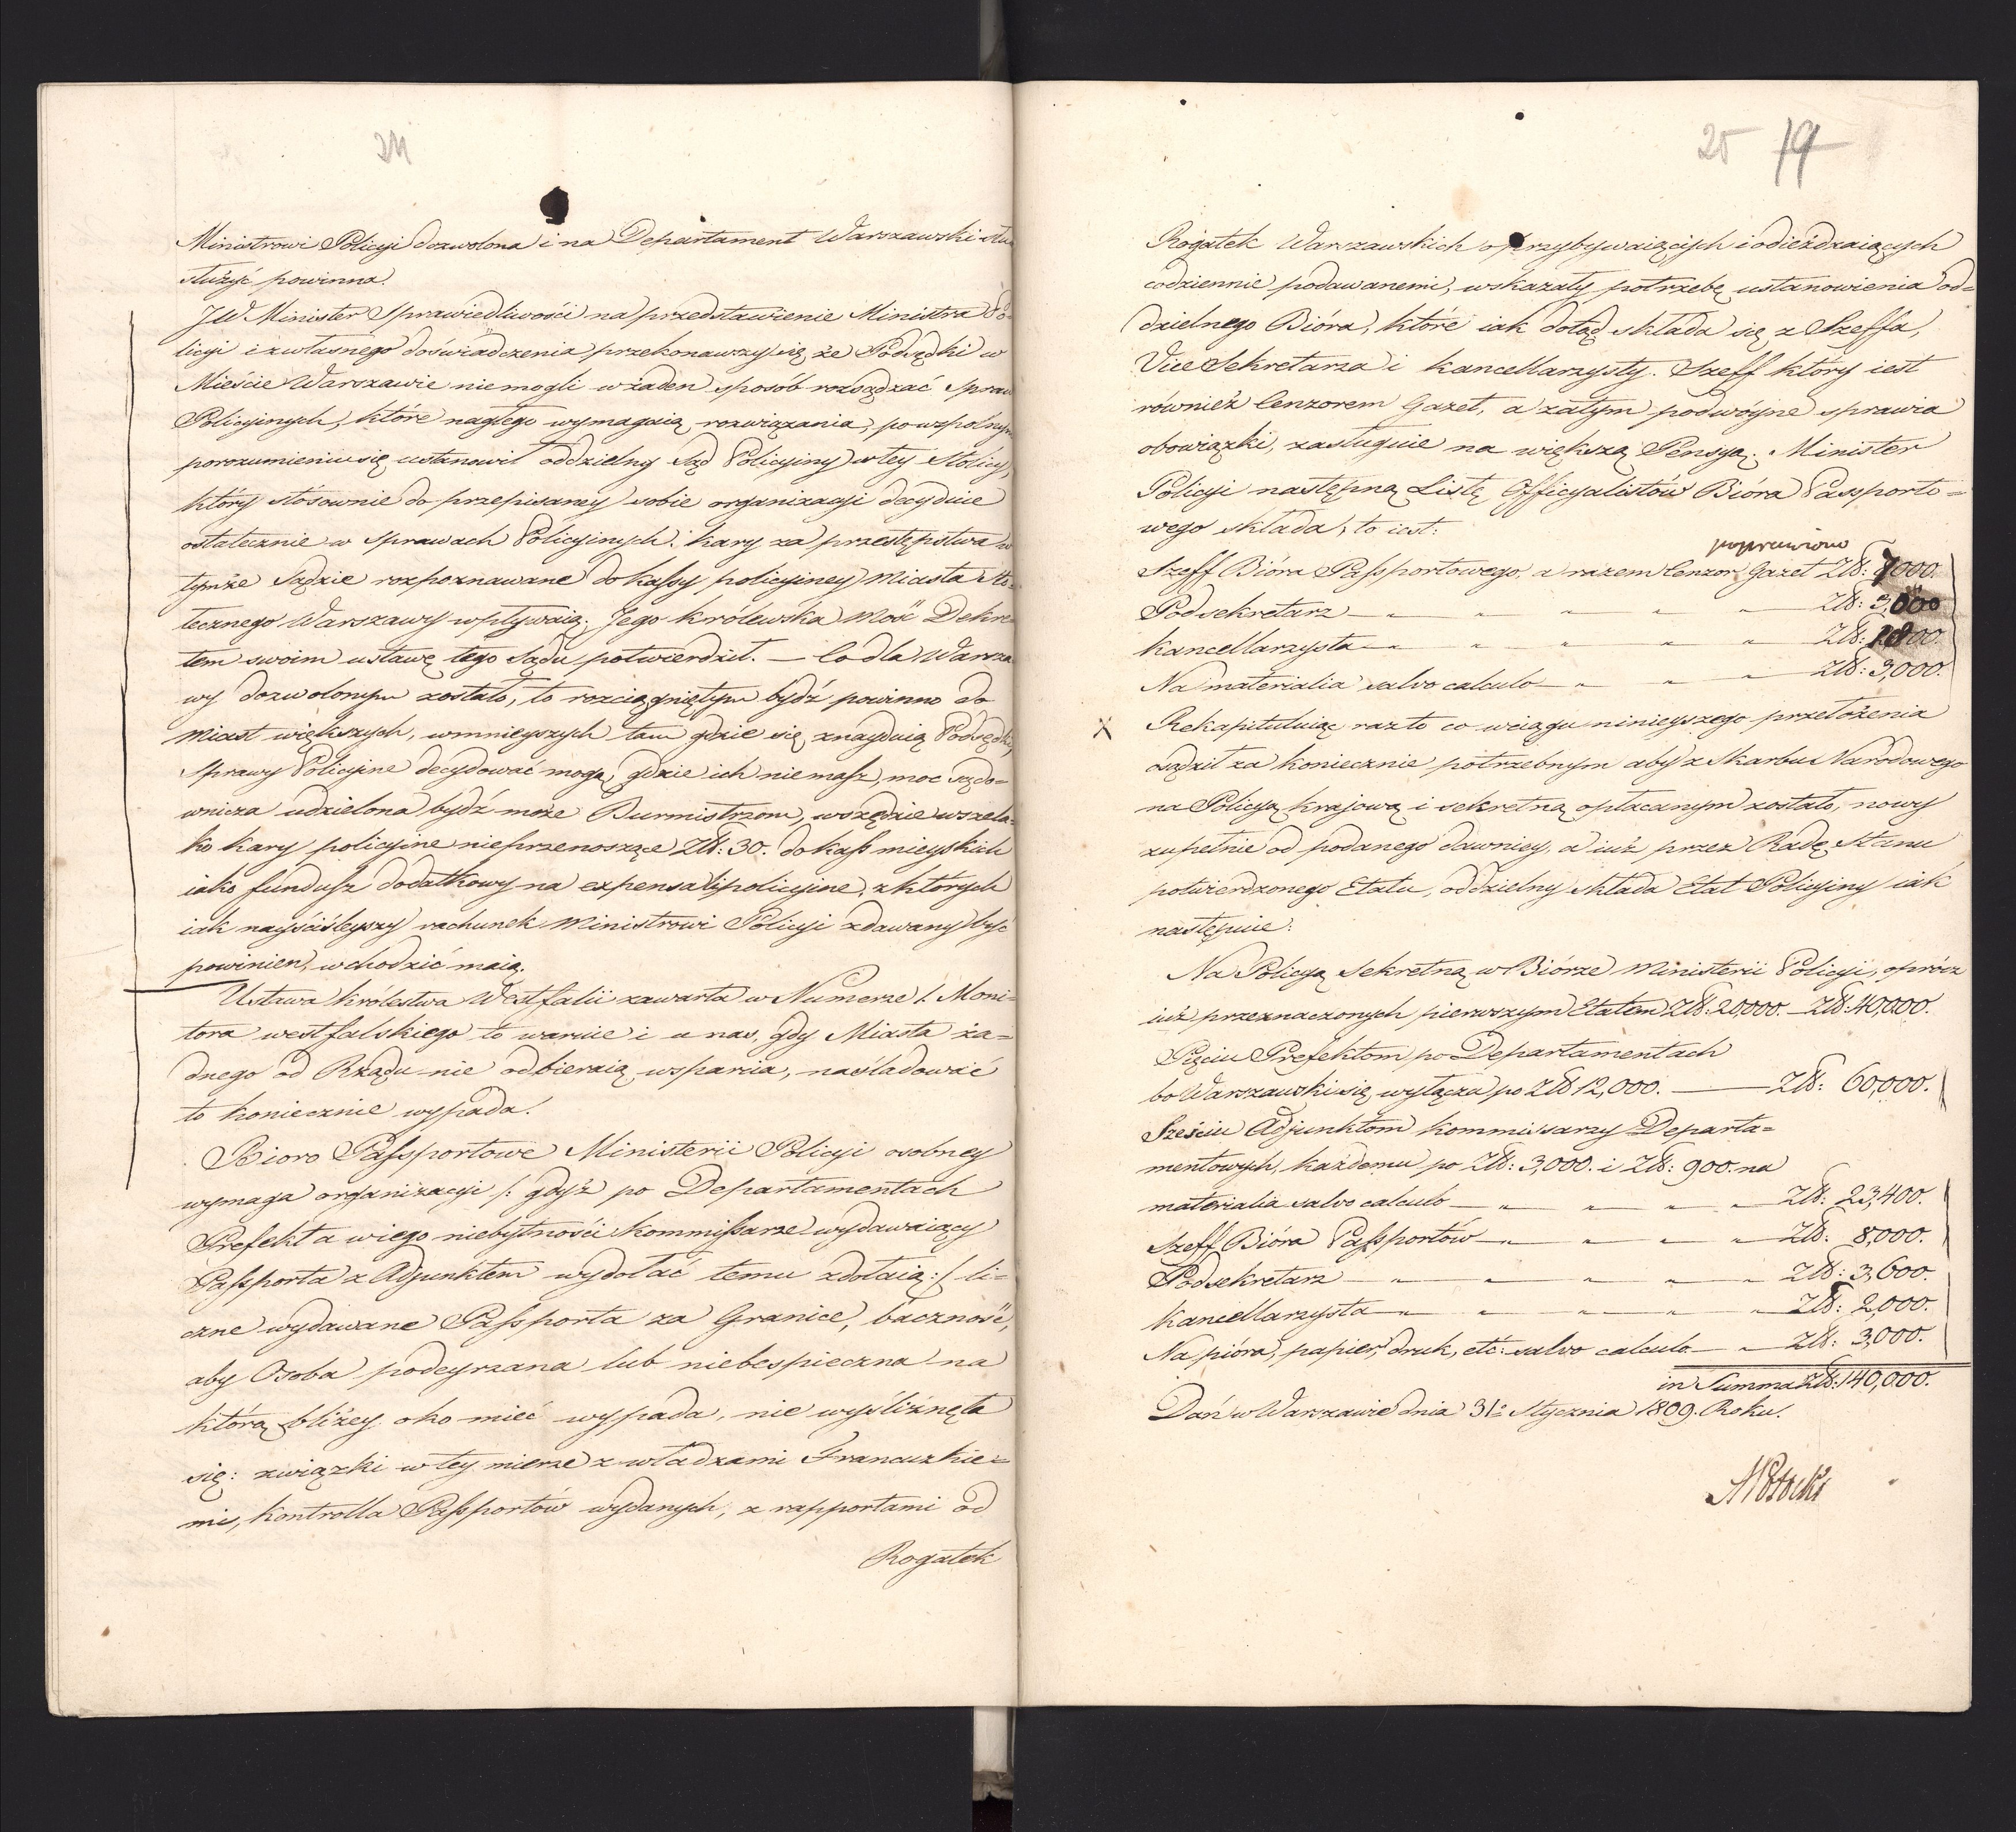 24
Ministrowi Policyi dozwolona i na Departament Warszawski
służyć powinna.
JW Minister Sprawiedliwości na przedstawienie Ministra Po=
licyi i z własnego doświadczenia przekonawszy się że Podsędki w
Mieście Warszawie niemogli w żaden sposób rozsądzać spraw
Policyinych, które nagłego wymagaią rozwiązania, po wspólnym
porozumieniu się ustanowił oddzielny Sąd Policyiny w tey Stolicy,
który stósownie do przepisaney sobie organizacyi decyduie
ostatecznie w sprawach Policyinych. kary za przestępstwa w
tymże Sądzie rozpoznawane do kassy policyiney Miasta Sto=
łecznego Warszawy wpływaią; Jego Królewska Mość Dekre=
tem swoim ustawę tego Sądu potwierdził. — Co dla Warsza
wy dozwolonym zostało, to rozciągniętym bydź powinno do
Miast większych, w mnieyszych tam gdzie się znayduią Podsędki,
sprawy Policyine decydować mogą, gdzie ich nie masz, moc sądo=
wnicza udzielona bydź może Burmistrzom, wszędzie wszela=
ko kary policyine nieprzenoszące Złł: 30. do kass mieyskich
iako fundusz dodatkowy na expensa policyine, z których
iak nayściśleyszy rachunek Ministrowi Policyi zdawany być
powinien, wchodzić maią.
Ustawa Królestwa Westfalii zawarta w Numerze 1. Moni=
tora westfalskiego to waruie i u nas, gdy Miasta ża=
dnego od Rządu nie odbieraią wsparcia, naśladować
to koniecznie wypada.
Bioro Passportowe Ministerii Policyi osobney
wymaga organizacyi /: gdyż po Departamentach
Prefekt a w iego niebytności Kommissarze wydawaiący
Passporta z Adjunktem wydołać temu zdołaią :/ li=
czne wydawane Passporta za Granice, baczność,
aby Osoba podeyrzana lub niebespieczna na
którą bliżey oko mieć wypada, nie wyśliznęła
się: związki w tey mierze z władzami Francuzkie=
mi, kontrolla Passportów wydanych, z rapportami od
Rogatek
25 19
Rogatek Warszawskich o przybywaiących i odieżdzaiących
codziennie podawanemi, wskazały potrzebę ustanowienia od=
dzielnego Bióra, które iak dotąd składa się z Szeffa,
Vice Sekretarza i kancellarzysty. Szeff który iest
również Cenzorem Gazet, a zatym podwóyne sprawia
obowiązki, zasługuie na większą Pensyą. Minister
Policyi następną Listę Officyalistów Bióra Passporto=
wego składa, to iest:
poprawiono
Szeff Bióra Passportowego, a razem Cenzor Gazet Złł: 7000.
Podsekretarz — " " " " " — Złł: 3,000
Kancellarzysta — " " " " " — Złł: 1800.
Na materialia salvo calculo — " " " — Złł: 3,000.
X Rekapituluiąc raz to co w ciągu ninieyszego przełożenia
sądził za koniecznie potrzebnym aby z Skarbu Narodowego
na Policyą kraiową i sekretną opłacanym zostało, nowy
zupełnie od podanego dawniey, a iuż przez Radę Stanu
potwierdzonego Etatu, oddzielny składa Etat Policyiny iak
następuie:
Na Policyą Sekretną w Biórze Ministerii Policyi, oprócz
iuż przeznaczonych pierwszym Etatem Złł: 20,000. — Złł: 40,000.
Pięciu Prefektom po Departamentach
bo Warszawski się wyłącza po Złł 12,000. — Złł: 60,000.
Sześciu Adjunktom Kommissarzy Departa=
mentowych, każdemu po Złł: 3,000. i Złł: 900. na
materialia salvo calculo — " " " " — Złł: 23,400.
Szeff Bióra Passportów — " " " " — Złł: 8,000.
Podsekretarz — " " " " " — Złł: 3,600.
Kancellarzysta — " " " " " — Złł: 2,000.
Na pióra, papier, druk, etc: salvo calculo — " — Złł: 3,000.
in Summa Złł: 140,000.
Dań w Warszawie dnia 31o Stycznia 1809. Roku.
APotocki